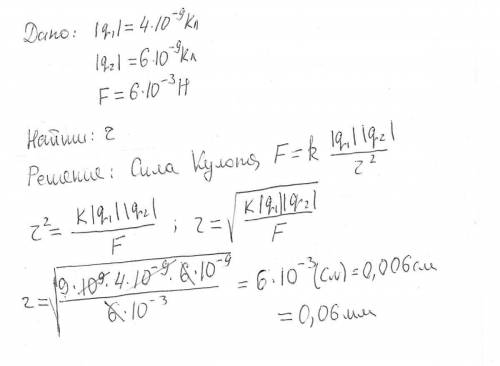 Дано: |q₁|=4·10⁻⁹Кл
|q₂|=6·10⁻⁹Кл
F=6·10⁻³Н
Найти: r
Решение: Сила Кулона, F=k |q₁||q₂|/r²
r²= k|q₁||q₂|/F ; r=√(k|q₁||q₂|/F)
r=√(9·10⁹·4·10⁻⁹·6·10⁻⁹/6·10⁻³) = 6·10⁻³(см)=0,006см
=0,06мм